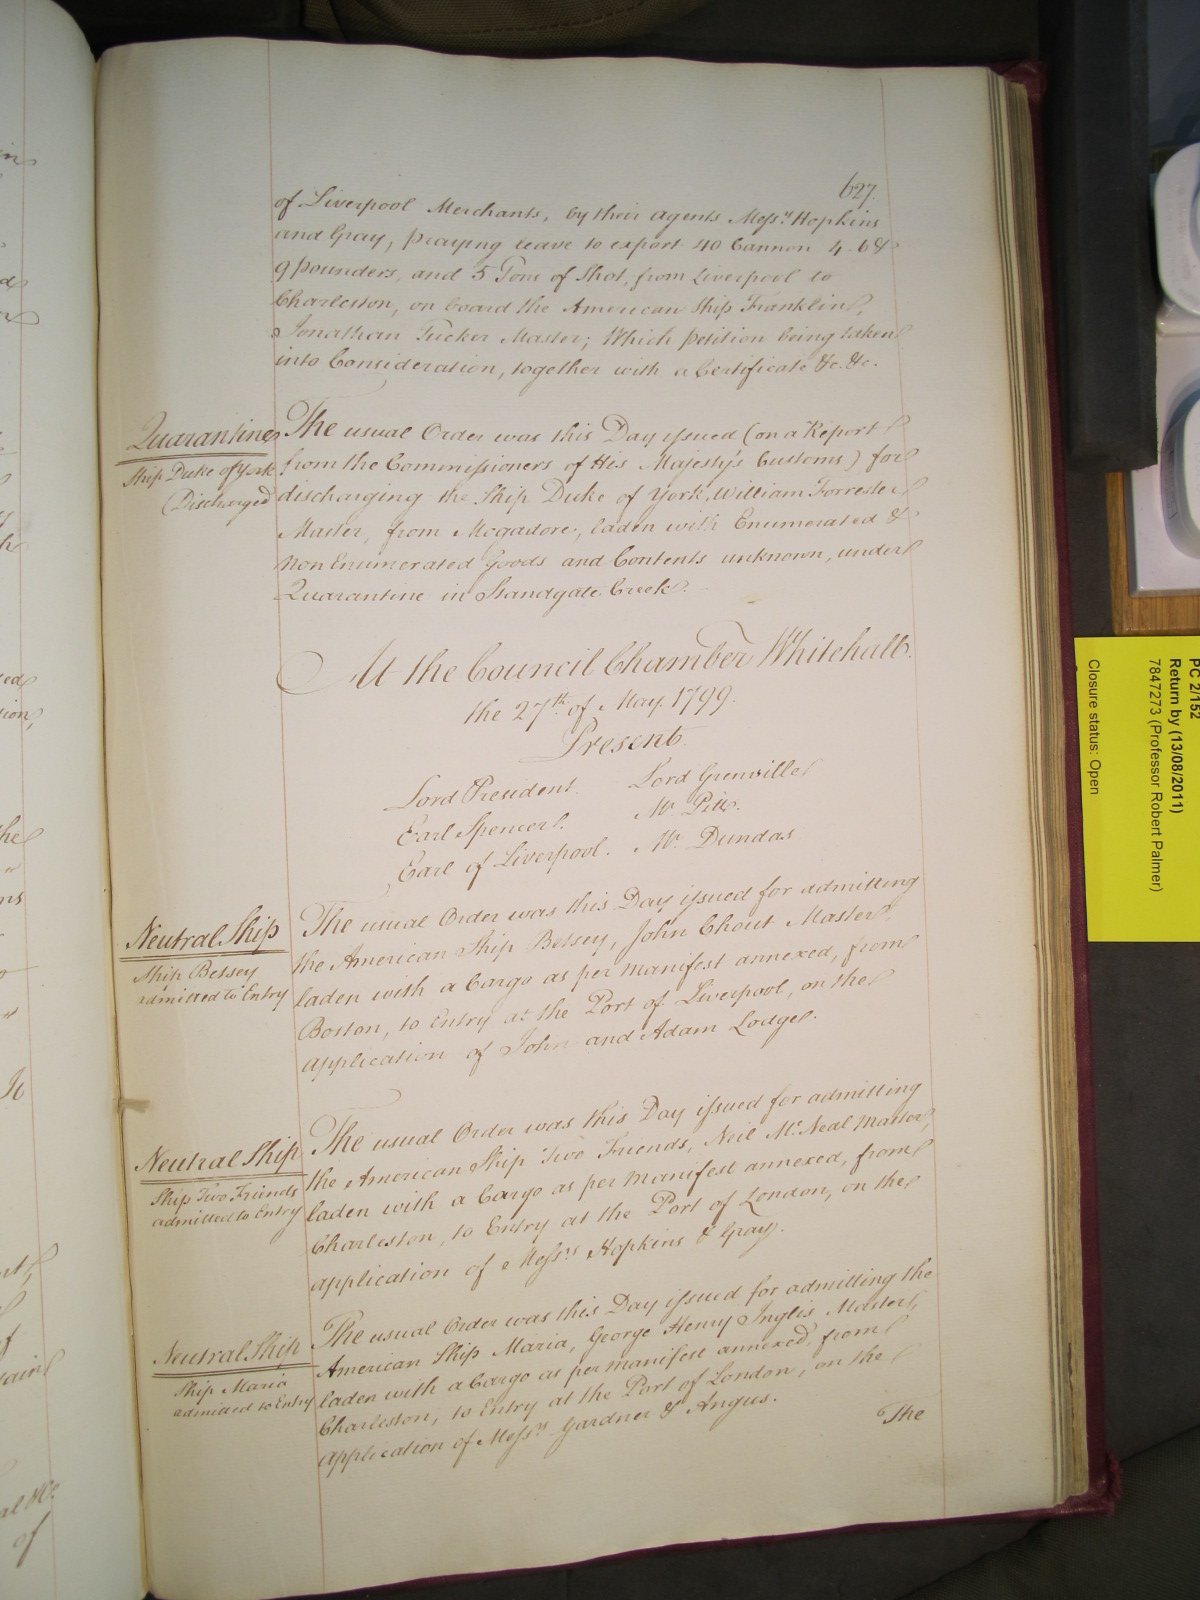 627.
of Liverpool Merchants, by their agents Mess.rs Hopkins
and Gray, praying leave to export 40 Cannon 4. 6 &
9 pounders, and 5 Tons of Shot, from Liverpool to
Charleston, on board the American Ship Franklin,
Jonathan Tucker Master; Which petition being taken
into Consideration, together with a Certificate &c. &c.
Quarantine
Ship Duke of York
Discharged
The usual Order was this Day issued (on a Report
from the Commissioners of His Majesty's Customs) for
discharging the Ship Duke of York, William Forrester
Master, from Mogadore, laden with Enumerated &
Non Enumerated Goods and Contents unknown, under
Quarantine in Standgate Creek.
At the Council Chamber Whitehall.
the 27th. of May. 1799.
Present.
Lord President. Lord Grenville
Earl Spencer. Mr. Pitt.
Earl of Liverpool. Mr. Dundas
Neutral Ship
Ship Betsey
admitted to Entry
The usual Order was this Day issued for admitting
the American Ship Betsey, John Chout Master,
laden with a Cargo as per Manifest annexed, from
Boston, to Entry at the Port of Liverpool, on the
application of John and Adam Lodge.
Neutral Ship
Ship Two Friends
admitted to Entry
The usual Order was this Day issued for admitting
the American Ship Two Friends, Neil Mc. Neal Master,
laden with a Cargo as per Manifest annexed, from
Charleston, to Entry at the Port of London, on the
application of Mess.rs Hopkins & Gray.
Neutral Ship
Ship Maria
admitted to Entry
The usual Order was this Day issued for admitting the
American Ship Maria, George Henry Inglis Master,
laden with a Cargo as per manifest annexed, from
Charleston, to Entry at the Port of London, on the
application of Mess.rs Gardner & Angus.
The
PC 2/152
Return by (13/08/2011)
7847273 (Professor Robert Palmer)
Closure status: Open